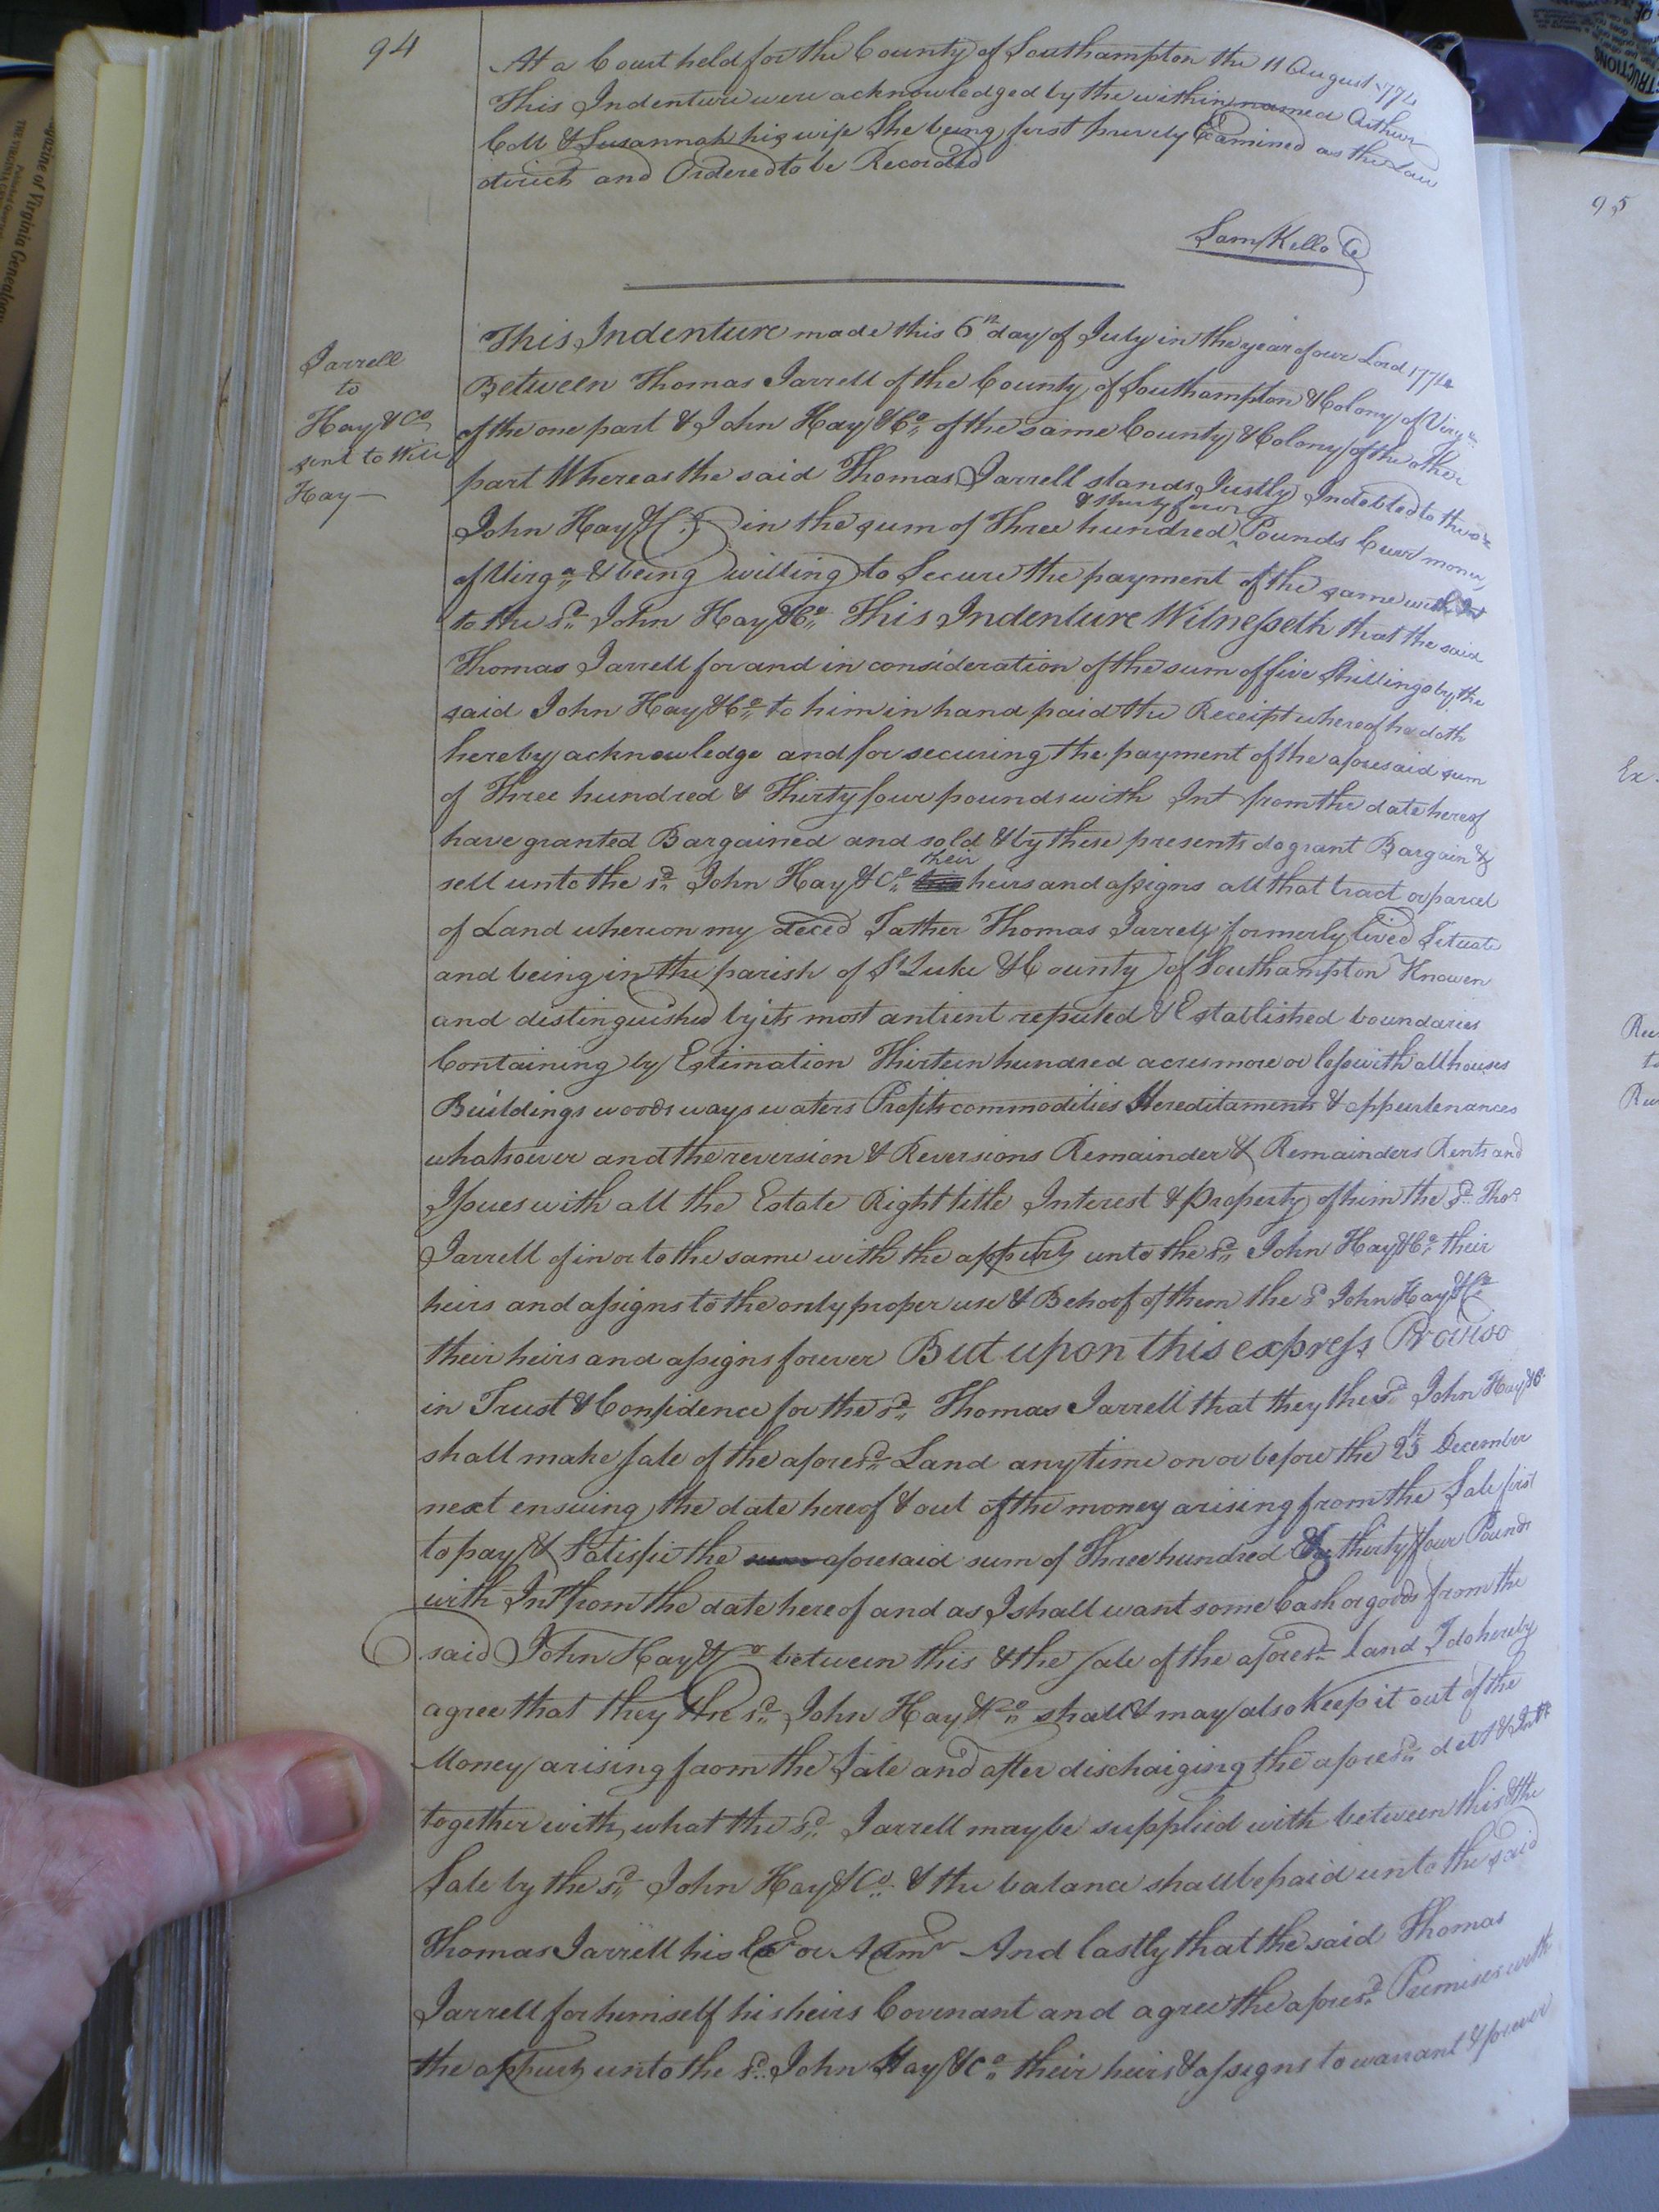 94
At a Court held for the County of Southampton the 11 August 1774
This Indenture were acknowledged by the within named Arthur
& Susannah his wife She being first privily Examined as the Law
directs and Ordered to be Recorded
Sam Kello C
Jarrell
to
Hay & Co
sent to Will
Hay
This Indenture made this 6th day of July in the year of our Lord 1774
Between Thomas Jarrell of the County of Southampton & Colony of Virga
of the one part & John Hay & Co of the same County & Colony of the other
part Whereas the said Thomas Jarrell stands Justly Indebted to the sd
& thirty four
John Hay & Co in the sum of Three hundred ^ Pounds Curr money
of Virga & being willing to Secure the payment of the same with Int
to the sd John Hay & Co This Indenture Witnesseth that the said
Thomas Jarrell for and in consideration of the sum of five Shillings by the
said John Hay & Co to him in hand paid the Receipt whereof he doth
hereby acknowledge and for securing the payment of the aforesaid sum
of Three hundred & Thirty four pounds with Int from the date hereof
have granted Bargained and sold & by these presents do grant Bargain &
their
sell unto the sd John Hay & Co heirs and assigns all that tract or parcel
of Land whereon my deced Father Thomas Jarrell formerly lived Situate
and being in the parish of St Luke & County of Southampton Knowen
and distinguished by its most antient reputed & Established boundaries
Containing by Estimation Thirteen hundred acres more or less with all houses
Buildings woods ways waters Profits commodities Hereditaments & appurtenances
whatsoever and the reversion & Reversions Remainder & Remainders Rents and
Issues with all the Estate Right title Interest & property of him the sd Thos
Jarrell of in or to the same with the appurts unto the sd John Hay & Co their
heirs and assigns to the only proper use & Behoof of them the sd John Hay & Co
their heirs and assigns forever But upon this express Proviso
in Trust & Confidence for the sd Thomas Jarrell that they the sd John Hay & Co
shall make sale of the aforesd Land any time on or before the 25th December
next ensuing the date hereof & out of the money arising from the Sale first
to pay & Satisfie the sum aforesaid sum of Three hundred & thirty four Pounds
with Int from the date hereof and as I shall want some Cash or goods from the
said John Hay & Co between this & the sale of the aforesd land I do hereby
agree that they the sd John Hay & Co shall & may also keep it out of the
Money arising from the Sale and after dischaiging the aforesd debt & Intt
together with what the sd Jarrell may be supplied with between this & the
Sale by the sd John Hay & Co & the balance shall be paid unto the said
Thomas Jarrell his Exr or Admr And lastly that the said Thomas
Jarrell for himself his heirs Covenant and agree the aforesd Premises with
the appurts unto the sd John Hay & Co their heirs & assigns to warrant & forever
95
Ex